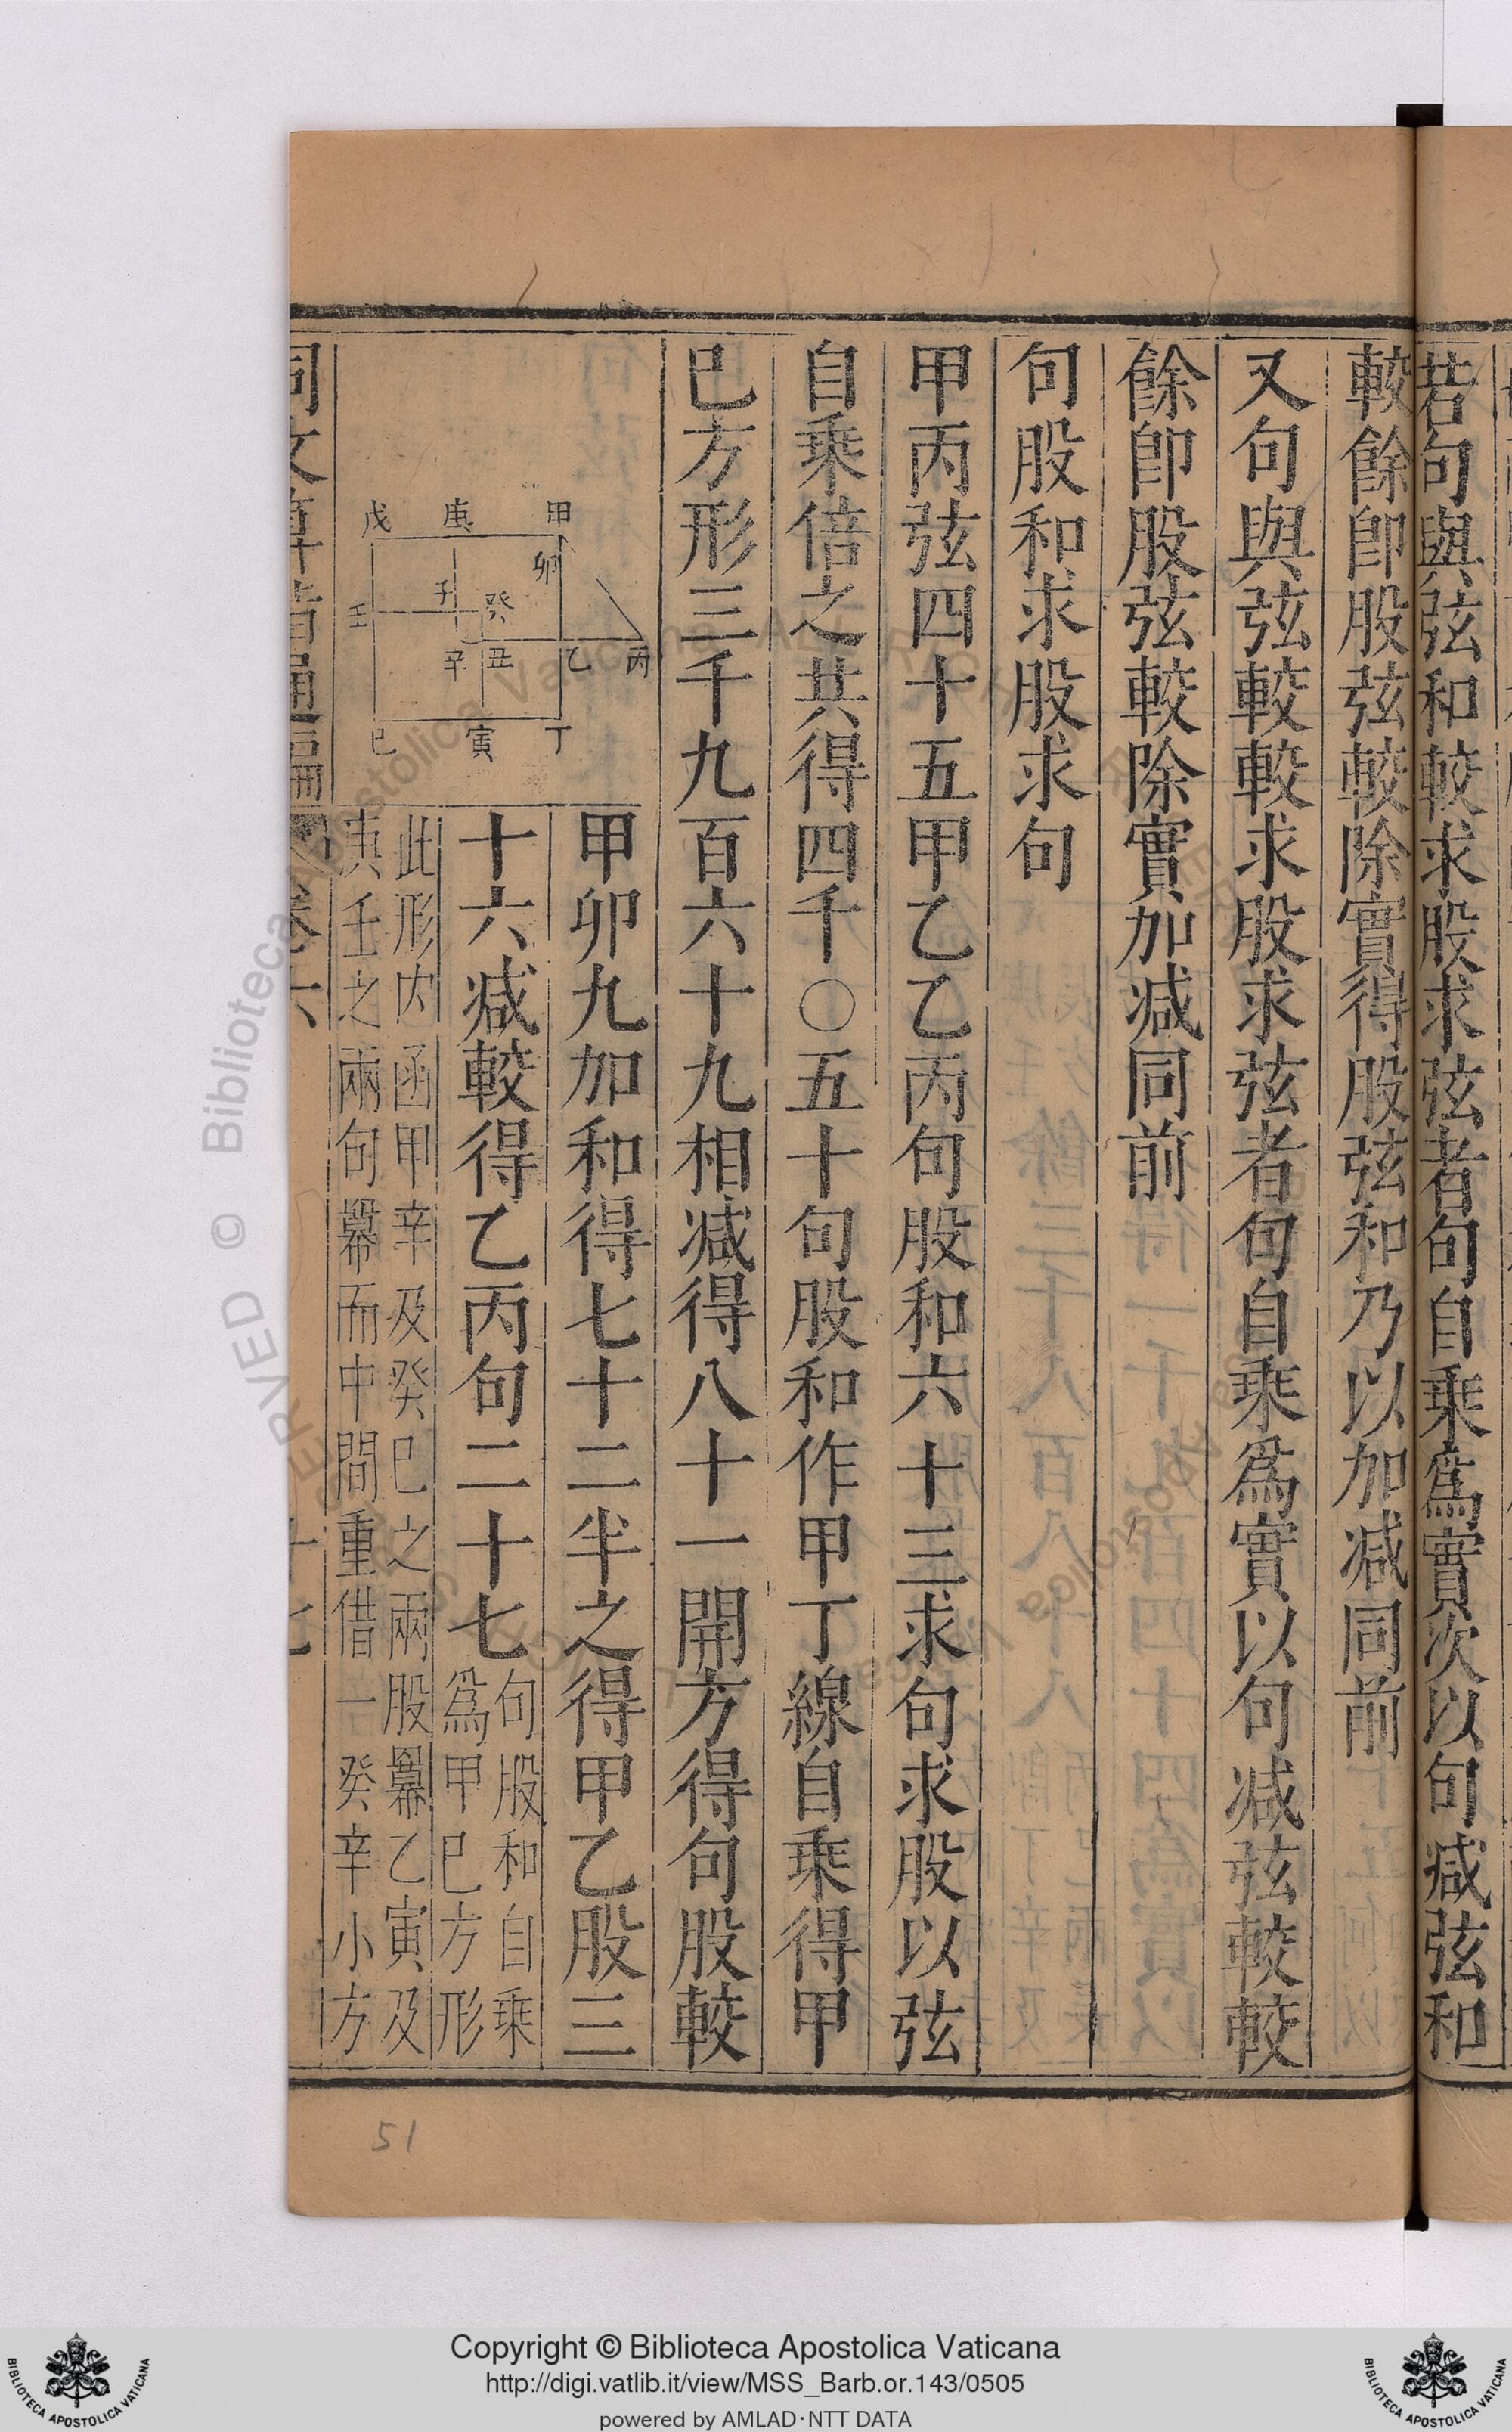 若句與弦和較求股求弦者句自乘爲實次以句減弦和
較餘卽股弦較除實得股弦和乃以加減同前
又句與弦較較求股求弦者句自乘爲實以句減弦較較
餘卽股弦較除實加減同前
句股和求股求句
甲丙弦四十五甲乙乙丙句股和六十三求句求股以弦
自乘倍之共得四千〇五十句股和作甲丁線自乘得甲
巳方形三千九百六十九相減得八十一開方得句股較
甲卯九加和得七十二半之得甲乙股三
十六減較得乙丙句二十七
句股和自乘
爲甲巳方形
此形内函甲辛及癸巳之兩股冪乙寅及
庚壬之兩句冪而中間重借一癸辛小方
甲
庚
戊
卯
子
癸
壬
丙
乙
丑
辛
丁
寅
巳
同文算指通編
卷六
十七
51
© Biblioteca Apostolica Vaticana
Copyright © Biblioteca Apostolica Vaticana
http://digi.vatlib.it/view/MSS_Barb.or.143/0505
powered by AMLAD·NTT DATA
BIBLIOTECA APOSTOLICA VATICANA
BIBLIOTECA APOSTOLICA VATICANA